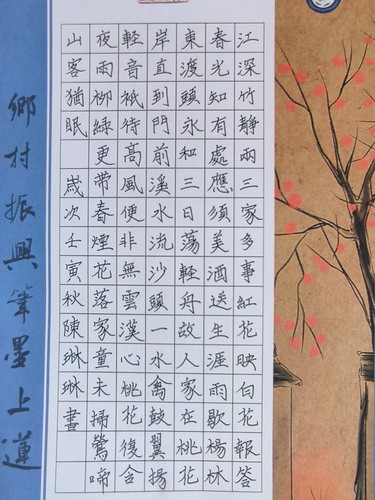 江深竹靜兩三家多事紅花映白花報答
春光知有處應須美酒送生涯雨歇楊林
東渡頭永和三日蕩輕舟故人家在桃花
岸直到門前溪水流沙頭一水禽鼓翼揚
輕音祗待高風便非無雲漢心桃花復含
夜雨柳綠更帶春煙花落家童未掃鶯啼
山客猶眠 歲次壬寅秋陳琳琳書
鄉村振興筆墨上蓮